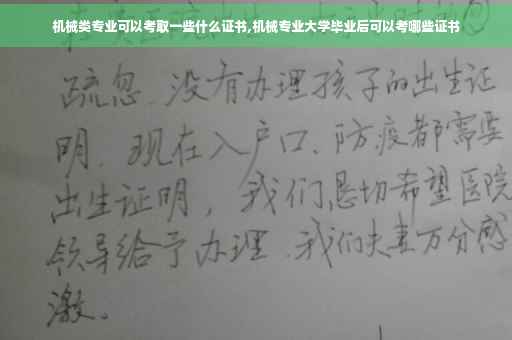 机械类专业可以考取一些什么证书,机械专业大学毕业后可以考哪些证书
疏忽、没有办理孩子的出生证
明、现在入户口、防疫都需要
出生证明，我们恳切希望医院
领导给予办理、我们夫妻万分感
激。